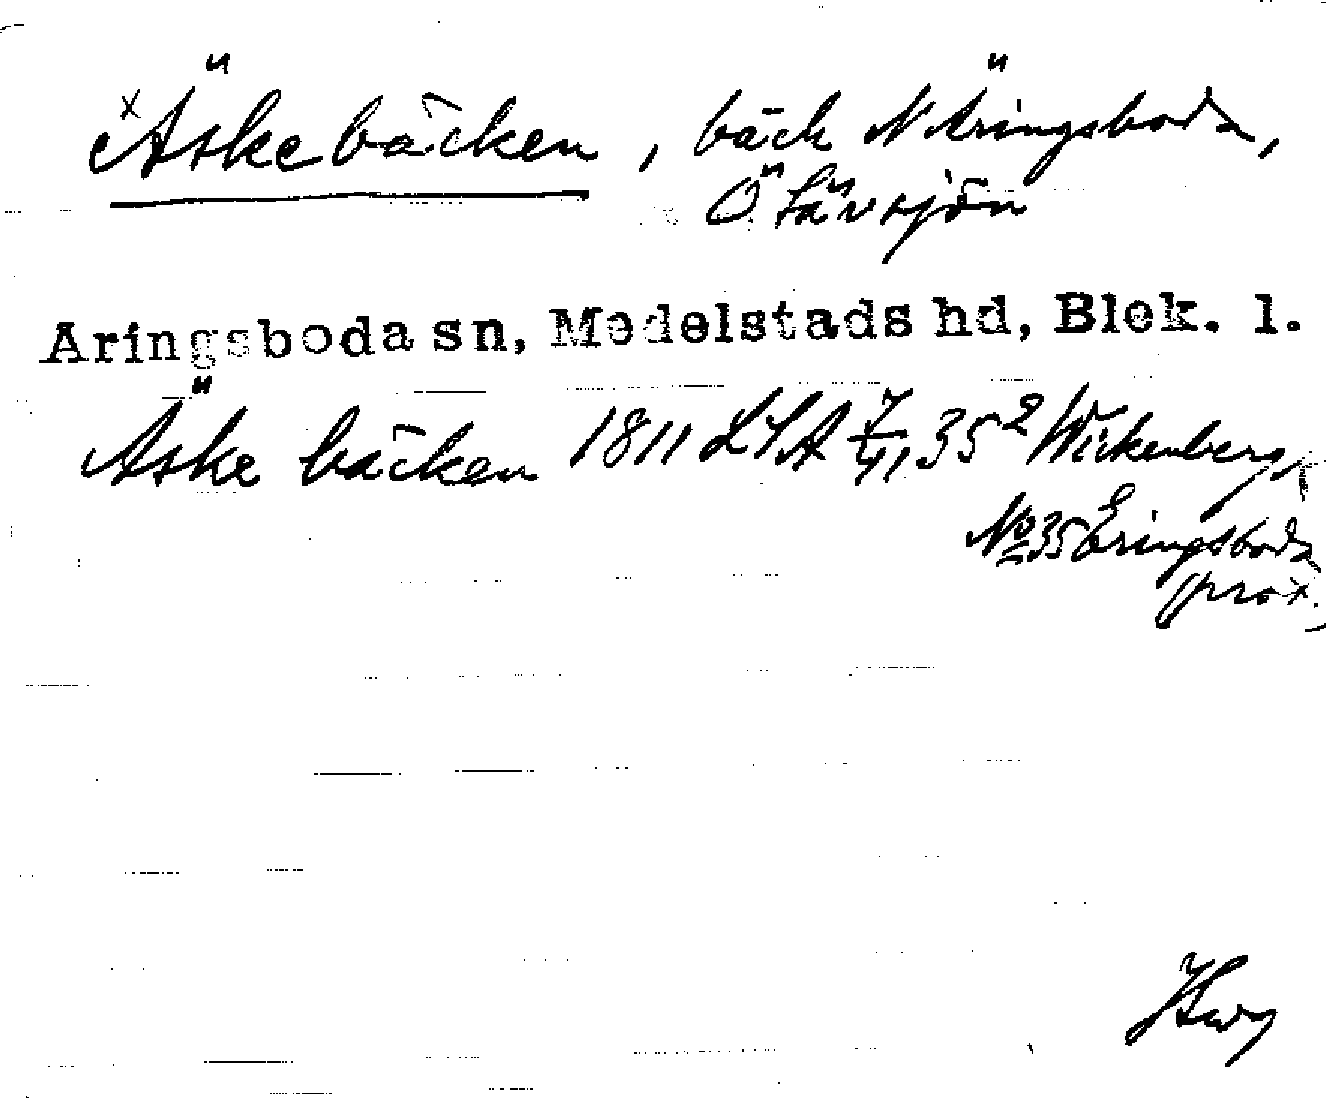 x Äskebäcken, bäck N Äringsboda,
Ö Lävsjön
Aringsboda sn, Medelstads hd, Blek. l.
Äske bäcken 1811 LSA 35² Wickenberg,
No 35 Eringsboda
(prox.)